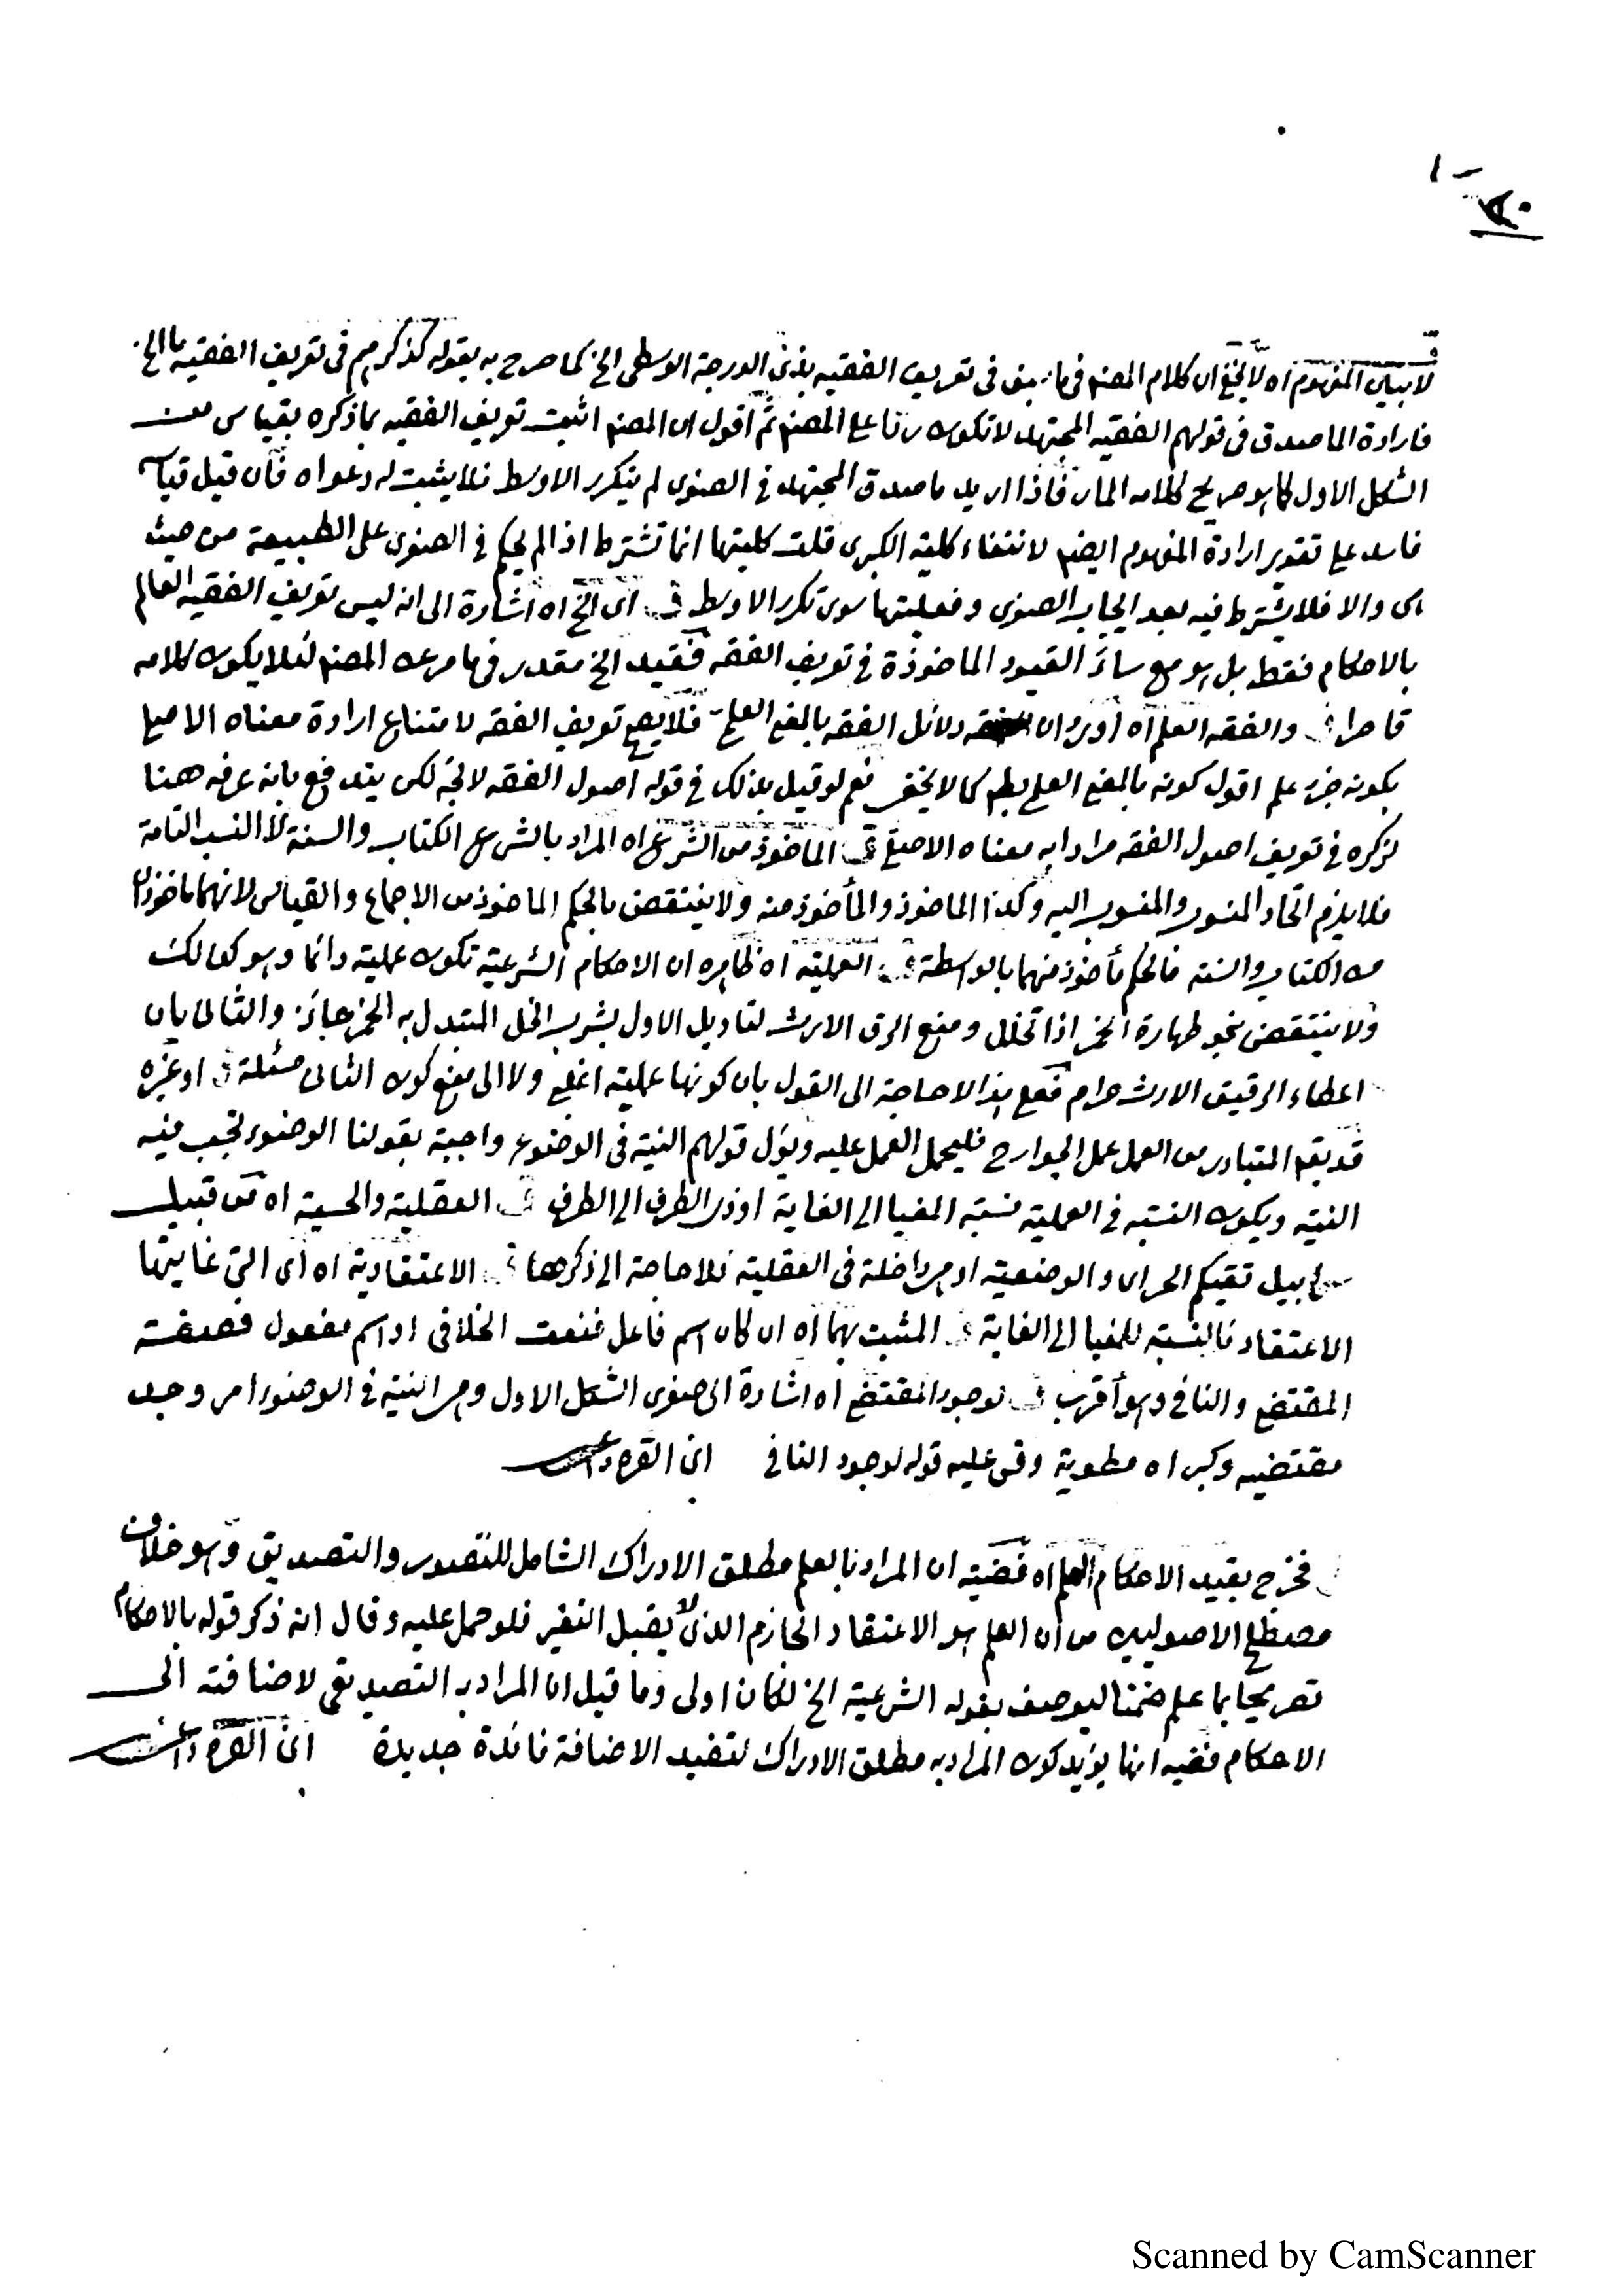 ١-
٨٠
ق
لا بيان المفهوم اه لا يخفى ان كلام المصنم فى ما يبق فى تعريف الفقيه بذى الدرجة الوسطى الخ كما صرح به بقوله كذكرهم فى تعريف الفقيه ما الخ
فارادة الماصدق فى قولهم الفقيه المجتهد لا تكون ردا على المصنم ثم اقول ان المصنم اثبت تعريف الفقيه بما ذكره بقياس من
الشكل الاول كما هو صريح كلامه المار فاذا اريد ماصدق المجتهد فى الصغرى لم يتكرر الاوسط فلا يثبت له دعواه فان قيل قياسه
فاسد على تقدير ارادة المفهوم ايضم لانتفاء كلية الكبرى قلت كليتها انما تشترط اذا لم يحكم فى الصغرى على الطبيعة من حيث
هى والا فلا يشترط فيه بعد ايجاب الصغرى وفعليتها سوى تكرر الاوسط ق اى الخ اه اشارة الى انه ليس تعريف الفقيه العالم
بالاحكام فقط بل هو مع سائر القيود الماخوذة فى تعريف الفقه فقيد الخ مقدر فى ما مر عن المصنم لئلا يكون كلامه
قاصرا ق والفقه العلم اه اورد ان دلائل الفقه بالمعنى العلمى فلا يصح تعريف الفقه لامتناع ارادة معناه الاصلى
بكونه جزء علم اقول كونه بالمعنى العلمى بطم كما لا يخفى نعم لو قيل بذلك فى قوله اصول الفقه لاتجه لكن يندفع بانه عرفه همنا
لذكره فى تعريف اصول الفقه مرادا به معناه الاصلى ق الماخوذ من الشرع اه المراد بالشرع الكتاب والسنة لا النسب التامة
فلا يلزم اتحاد المنسوب والمنسوب اليه وكذا الماخوذ والمأخوذ منه ولا ينتقض بالحكم الماخوذ من الاجماع والقياس لانهما ماخوذان
من الكتاب والسنة فالحكم مأخوذ منهما بالواسطة ق العملية اه ظاهره ان الاحكام الشرعية تكون عملية دائما وهو كذلك
ولا ينتقض بنحو طهارة الخمر اذا تخلل ومنع الرق الارث لتاويل الاول بشرب الخل المتبدل به الخمر جائز والثانى بان
اعطاء الرقيق الارث حرام فمع هذا لا حاجة الى القول بان كونها عملية اغلبى ولا الى منع كون الثانى مسئلة ق او غيره
قد يقم المتبادر من العمل عمل الجوارح فليحمل العمل عليه ويؤل قولهم النية فى الوضوء واجبة بقولنا الوضوء تجب فيه
النية ويكون النسبة فى العملية نسبة المغيا الى الغاية او ذى الطرف الى الطرف ق العقلية والحسية اه من قبيل
سرابيل تقيكم الحر اى والوضعية او هى داخلة فى العقلية فلا حاجة الى ذكرها ق الاعتقادية اه اى التى غايتها
الاعتقاد فالنسبة للمغيا الى الغاية ق المثبت بهما اه ان كان اسم فاعل فنعت الخلافى او اسم مفعول فصفة
المقتضى والنافى وهو أقرب ق لوجود المقتضى اه اشارة الى صغرى الشكل الاول وهى النية فى الوضوء امر وجد
مقتضيه وكبراه مطوية وقس عليه قوله لوجود النافى ابن القره داغى
ق فخرج بقيد الاحكام العلم اه قضيته ان المراد بالعلم مطلق الادراك الشامل للتصور والتصديق وهو خلاف
مصطلح الاصوليين من ان العلم هو الاعتقاد الجازم الذى لا يقبل التغير فلو حمل عليه وقال انه ذكر قوله بالاحكام
تصريحا بما علم ضمنا ليوصف بقوله الشرعية الخ لكان اولى وما قيل ان المراد به التصديق لاضافته الى
الاحكام ففيه انها يؤيد كون المراد به مطلق الادراك لتفيد الاضافة فائدة جديدة ابن القره داغى
Scanned by CamScanner